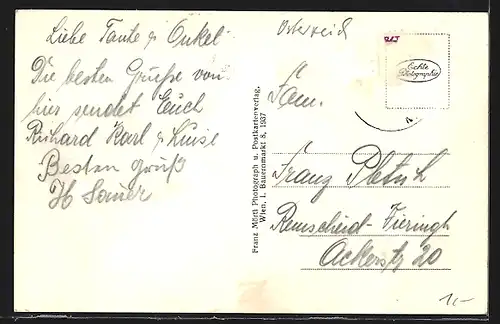 Liebe Tante & Onkel
Die besten Grüße von
hier sendet Euch
Richard Karl & Luise
Besten Gruß
H Sauer
Franz Mörtl Photograph u. Postkartenverlag,
Wien, I. Bauernmarkt 8, 1937
Österreich
Echte
Photographie
Fam.
Franz
Remscheid-
Ackerstr 20
1,-